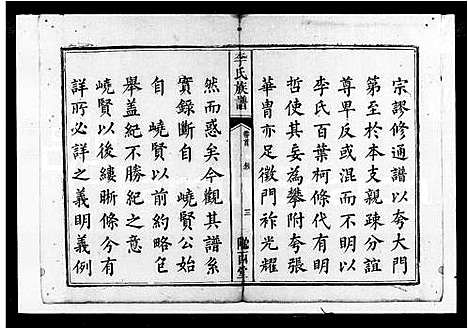 宗謬修通譜以夸大門
第至於本支親疎分誼
尊卑反或混而不明我
李氏百葉柯條代有明
哲使其妄為攀附夸張
華胄亦足徵門祚光耀
李氏族譜
卷首
三
然而惑矣今觀其譜系
實錄斷自 嶢賢公始
自 嶢賢以前約略包
舉盖紀不勝紀之意
嶢賢以後縷晰條分有
詳所必詳之義明義例